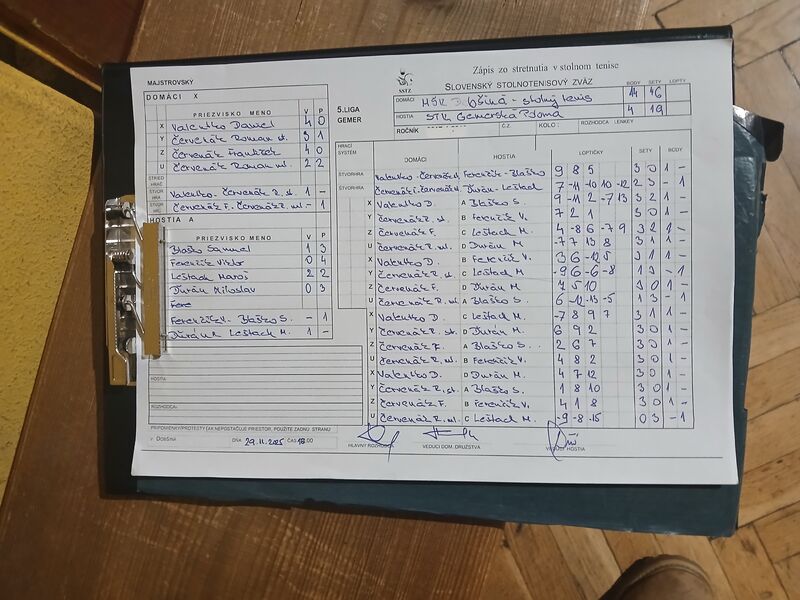 MAJSTROVSKÝ
DOMÁCI X
PRIEZVISKO MENO V P
X Valentko Daniel 4 0
Y Červenák Roman st. 3 1
Z Červenák František 4 0
U Červenák Roman ml. 2 2
STRIED HRÁČ
ŠTVOR HRA Valentko - Červenák R. st. 1 -
ŠTVOR HRA Červenák F. Červenák R. ml - 1
HOSTIA A
PRIEZVISKO MENO V P
Blaško Samuel 1 3
Ferenčík Viktor 0 4
Leštach Maroš 2 2
Durán Miloslav 0 3
Fere
Ferenčík V. - Blaško S. - 1
Durán M. Leštach M. 1 -
HOSTIA:
ROZHODCA:
PRIPOMIENKY/PROTESTY (AK NEPOSTAČUJE PRIESTOR, POUŽITE ZADNÚ STRANU
V DOBŠINÁ DŇA 29.11.2025 ČAS 13.00
Zápis zo stretnutia v stolnom tenise
SSTZ SLOVENSKÝ STOLNOTENISOVÝ ZVÄZ
BODY SETY LOPTY
5.LIGA GEMER
DOMÁCI MŠK Dobšiná - stolný tenis 14 46
HOSTIA STK Gemerská Poloma 4 19
ROČNÍK Č.Z. KOLO: ROZHODCA LENKEY
HRACÍ SYSTÉM DOMÁCI HOSTIA LOPTIČKY SETY BODY
ŠTVORHRA Valentko - Červenák st Ferenčík - Blaško 9 8 5 3 0 1 -
ŠTVORHRA Červenák F. Červenák Durán - Leštach 7 -11 -10 10 -12 2 3 - 1
X Valentko D. A Blaško S. 9 -11 2 -7 13 3 2 1 -
Y Červenák R. st. B Ferenčík V. 7 2 1 3 0 1 -
Z Červenák F. C Leštach M. 4 -8 6 -7 9 3 2 1 -
U Červenák R. ml. D Durán M. -7 7 13 8 3 1 1 -
X Valentko D. B Ferenčík V. 3 6 -12 5 3 1 1 -
Y Červenák R. st. C Leštach M. -9 6 -6 -8 1 3 - 1
Z Červenák F. D Durán M. 7 5 10 3 0 1 -
U Červenák R. ml. A Blaško S. 6 -12 -13 -5 1 3 - 1
X Valentko D. C Leštach M. -7 8 9 7 3 1 1 -
Y Červenák R. st. D Durán M. 6 9 2 3 0 1 -
Z Červenák F. A Blaško S. 2 6 7 3 0 1 -
U Červenák R. ml. B Ferenčík V. 4 8 2 3 0 1 -
X Valentko D. D Durán M. 4 7 12 3 0 1 -
Y Červenák R. st. A Blaško S. 1 8 10 3 0 1 -
Z Červenák F. B Ferenčík V. 4 1 8 3 0 1 -
U Červenák R. ml. C Leštach M. -9 -8 -15 0 3 - 1
HLAVNÝ ROZHODCA VEDÚCI DOM. DRUŽSTVA VEDÚCI HOSTIA